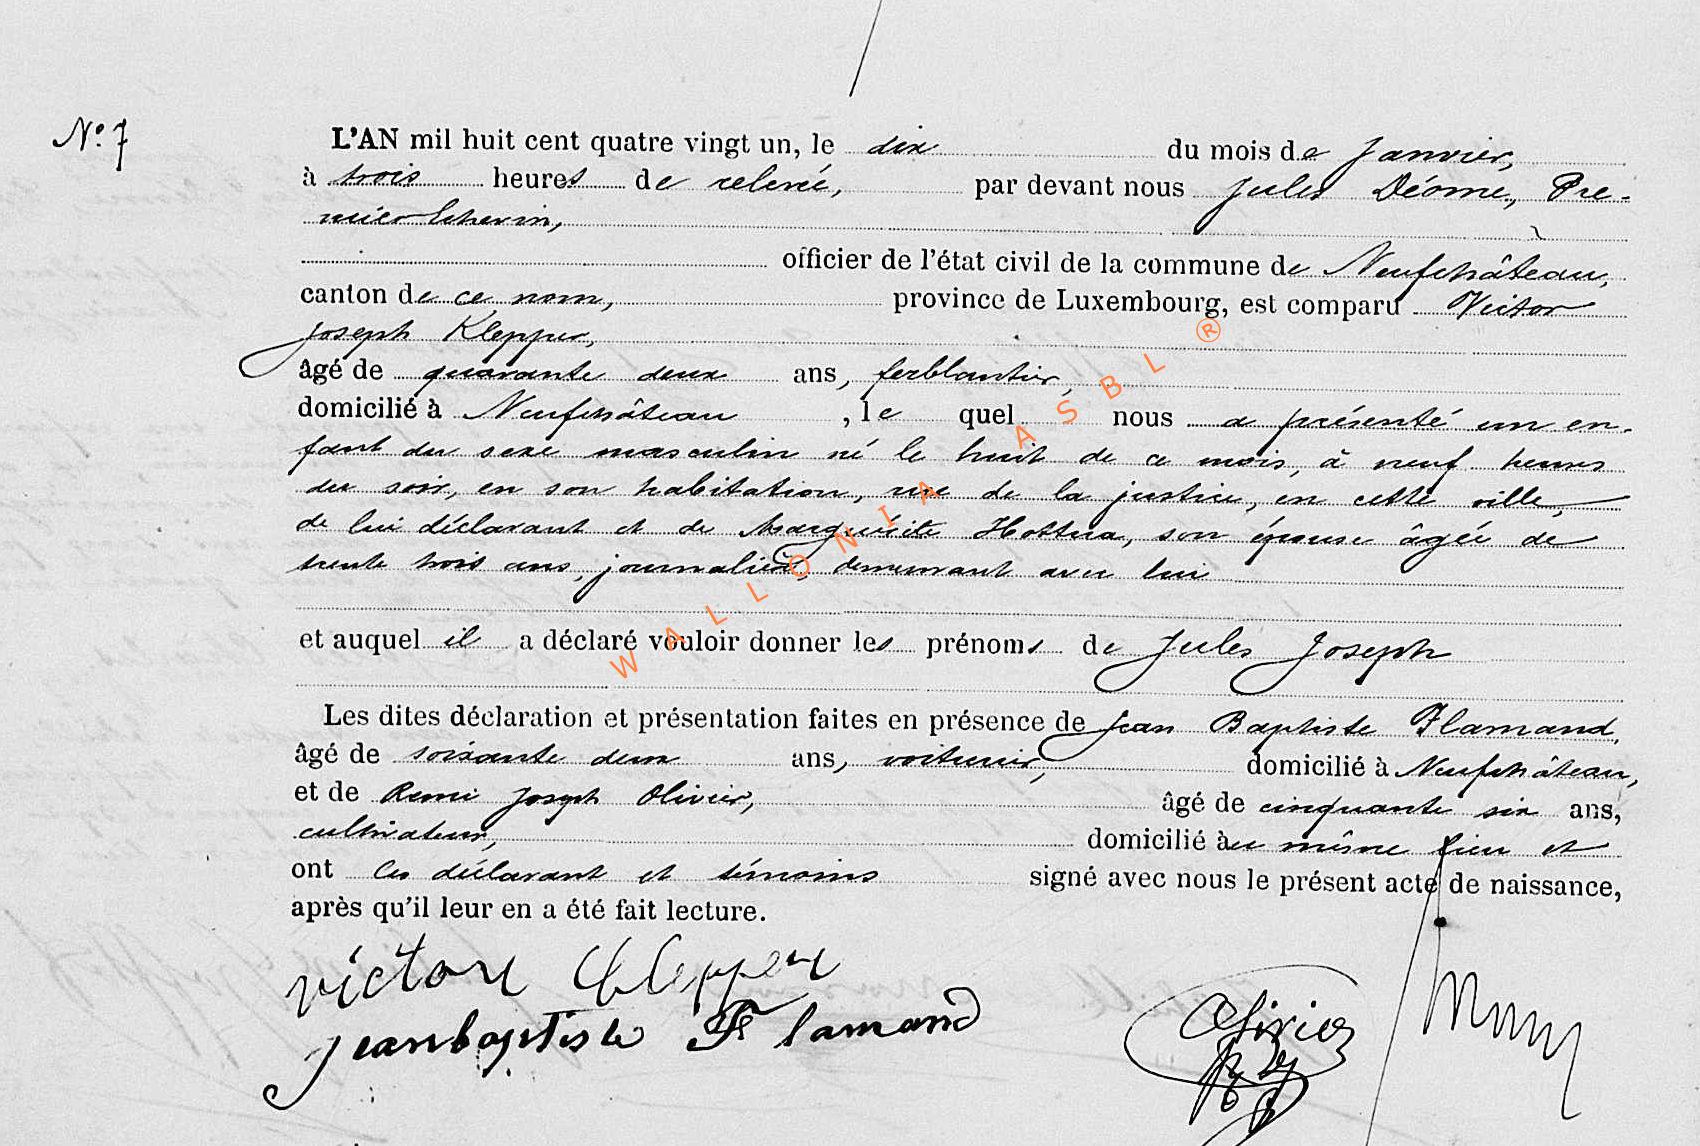 N° 7
L'AN mil huit cent quatre vingt un, le dix du mois de Janvier,
à trois heures de relevée, par devant nous Jules Déome, Pre-
mier Echevin,
officier de l'état civil de la commune de Neufchâteau,
canton de ce nom, province de Luxembourg, est comparu Victor
Joseph Klepper,
âgé de quarante deux ans, ferblantier,
domicilié à Neufchâteau, le quel nous a présenté un en-
fant du sexe masculin né le huit de ce mois, à neuf heures
du soir, en son habitation, rue de la justice, en cette ville,
de lui déclarant et de Marguérite Hottua, son épouse âgée de
trente trois ans, journalière, demeurant avec lui
et auquel il a déclaré vouloir donner les prénoms de Jules Joseph
Les dites déclaration et présentation faites en présence de Jean Baptiste Flamand,
âgé de soixante deux ans, voiturier, domicilié à Neufchâteau,
et de Remi Joseph Olivier, âgé de cinquante six ans,
cultivateur, domicilié au même lieu et
ont les déclarant et témoins signé avec nous le présent acte de naissance,
après qu'il leur en a été fait lecture.
victor Klepper
jeanbaptiste Flamand
Olivier
WALLONIA ASBL ®